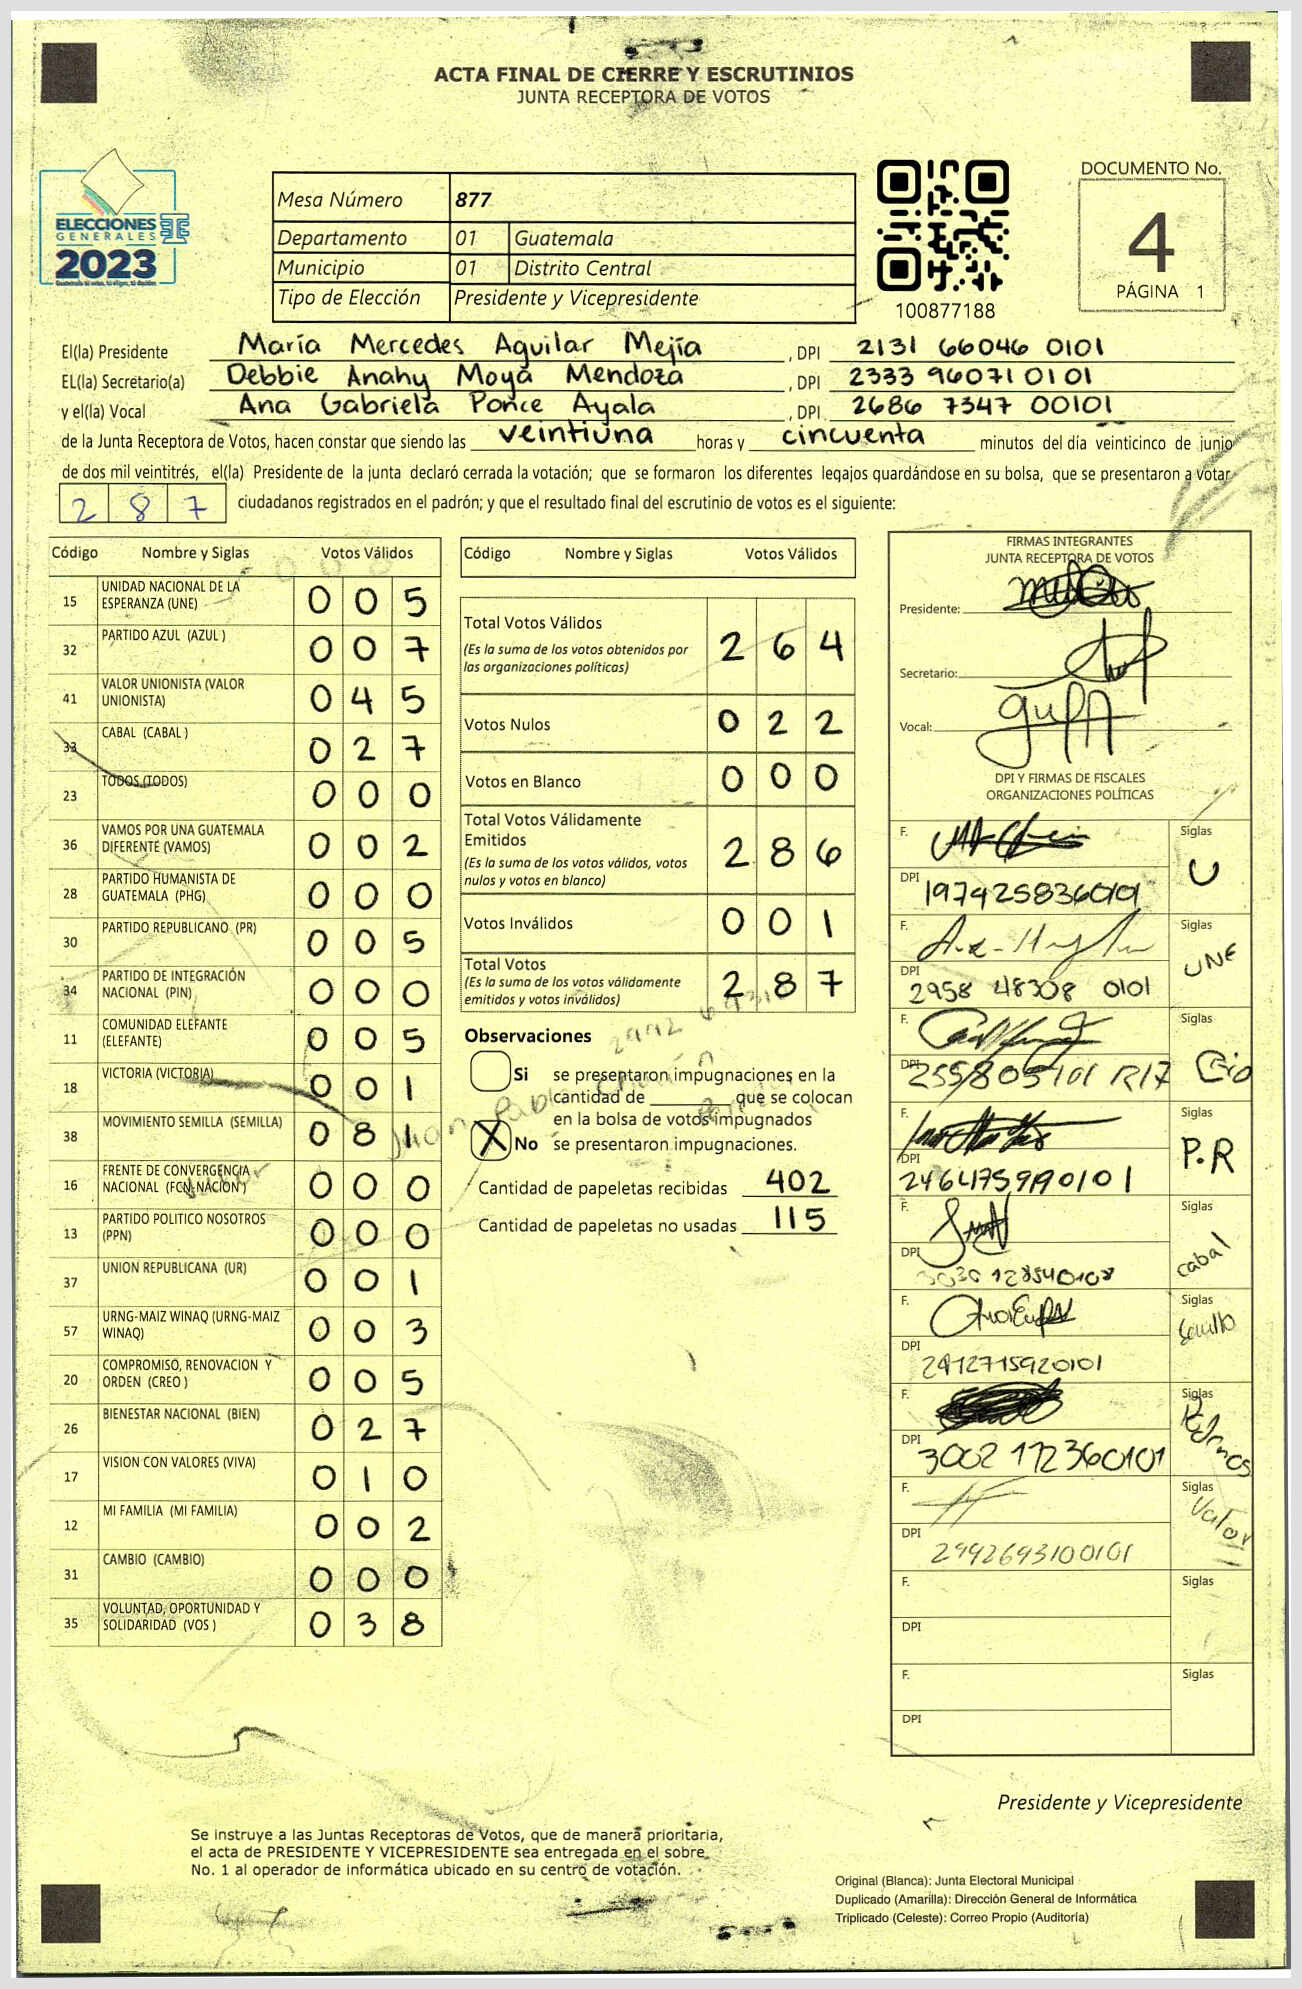 ACTA FINAL DE CIERRE Y ESCRUTINIOS
JUNTA RECEPTORA DE VOTOS
ELECCIONES
GENERALES
2023
Mesa Número 877
Departamento 01 Guatemala
Municipio 01 Distrito Central
Tipo de Elección Presidente y Vicepresidente
100877188
DOCUMENTO No.
4
PÁGINA 1
El(la) Presidente María Mercedes Aguilar Mejía , DPI 2131 66046 0101
EL(la) Secretario(a) Debbie Anahy Moya Mendoza , DPI 2333 96071 0101
y el(la) Vocal Ana Gabriela Ponce Ayala , DPI 2686 7347 00101
de la Junta Receptora de Votos, hacen constar que siendo las veintiuna horas y cincuenta minutos del día veinticinco de junio
de dos mil veintitrés, el(la) Presidente de la junta declaró cerrada la votación; que se formaron los diferentes legajos guardándose en su bolsa, que se presentaron a votar
287 ciudadanos registrados en el padrón; y que el resultado final del escrutinio de votos es el siguiente:
Código Nombre y Siglas Votos Válidos
15 UNIDAD NACIONAL DE LA ESPERANZA (UNE) 0 0 5
32 PARTIDO AZUL (AZUL ) 0 0 7
41 VALOR UNIONISTA (VALOR UNIONISTA) 0 4 5
33 CABAL (CABAL ) 0 2 7
23 TODOS (TODOS) 0 0 0
36 VAMOS POR UNA GUATEMALA DIFERENTE (VAMOS) 0 0 2
28 PARTIDO HUMANISTA DE GUATEMALA (PHG) 0 0 0
30 PARTIDO REPUBLICANO (PR) 0 0 5
34 PARTIDO DE INTEGRACIÓN NACIONAL (PIN) 0 0 0
11 COMUNIDAD ELEFANTE (ELEFANTE) 0 0 5
18 VICTORIA (VICTORIA) 0 0 1
38 MOVIMIENTO SEMILLA (SEMILLA) 0 8 1
16 FRENTE DE CONVERGENCIA NACIONAL (FCN-NACION ) 0 0 0
13 PARTIDO POLITICO NOSOTROS (PPN) 0 0 0
37 UNION REPUBLICANA (UR) 0 0 1
57 URNG-MAIZ WINAQ (URNG-MAIZ WINAQ) 0 0 3
20 COMPROMISO, RENOVACION Y ORDEN (CREO ) 0 0 5
26 BIENESTAR NACIONAL (BIEN) 0 2 7
17 VISION CON VALORES (VIVA) 0 1 0
12 MI FAMILIA (MI FAMILIA) 0 0 2
31 CAMBIO (CAMBIO) 0 0 0
35 VOLUNTAD, OPORTUNIDAD Y SOLIDARIDAD (VOS ) 0 3 8
Código Nombre y Siglas Votos Válidos
Total Votos Válidos 2 6 4
(Es la suma de los votos obtenidos por
las organizaciones políticas)
Votos Nulos 0 2 2
Votos en Blanco 0 0 0
Total Votos Válidamente
Emitidos 2 8 6
(Es la suma de los votos válidos, votos
nulos y votos en blanco)
Votos Inválidos 0 0 1
Total Votos 2 8 7
(Es la suma de los votos válidamente
emitidos y votos inválidos)
Observaciones
Si se presentaron impugnaciones en la
cantidad de que se colocan
en la bolsa de votos impugnados
X No se presentaron impugnaciones.
Cantidad de papeletas recibidas 402
Cantidad de papeletas no usadas 115
Juan Pablo
FIRMAS INTEGRANTES
JUNTA RECEPTORA DE VOTOS
Presidente:
Secretario:
Vocal:
DPI Y FIRMAS DE FISCALES
ORGANIZACIONES POLÍTICAS
F. Siglas U
DPI 1974258360101
F. Siglas UNE
DPI 2958 48308 0101
F. Siglas
DPI
F. Siglas P.R
DPI
F. Siglas cabal
DPI
F. Siglas
DPI 2412715920101
F. Siglas
DPI 3002 172360101
F. Siglas Valor
DPI 2992693100101
F. Siglas
DPI
F. Siglas
DPI
Presidente y Vicepresidente
Se instruye a las Juntas Receptoras de Votos, que de manera prioritaria,
el acta de PRESIDENTE Y VICEPRESIDENTE sea entregada en el sobre
No. 1 al operador de informática ubicado en su centro de votación.
Original (Blanca): Junta Electoral Municipal
Duplicado (Amarilla): Dirección General de Informática
Triplicado (Celeste): Correo Propio (Auditoría)